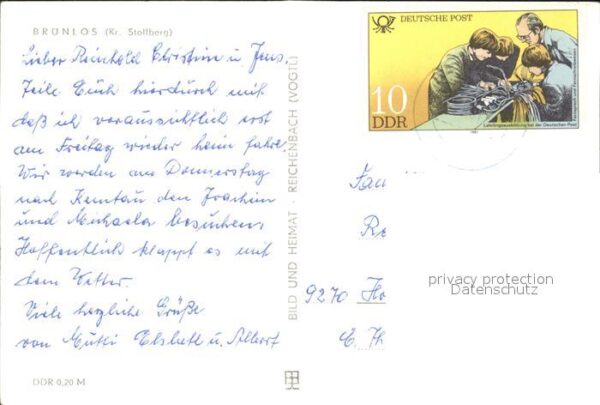 BRÜNLOS (Kr. Stollberg)
Lieber Reinhold Christine u. Jens.
Teile Euch hierdurch mit
daß ich voraussichtlich erst
am Freitag wieder heim fahre
Wir werden am Donnerstag
nach den Joachim
und Michaela besuchen.
Hoffentlich klappt es mit
dem Wetter.
Viele herzliche Grüße
von Mutti u. Albert
DDR 0,20 M
BILD UND HEIMAT · REICHENBACH (VOGTL)
DEUTSCHE POST
10
DDR
Lehrlingsausbildung bei der Deutschen Post
1981
Fam
Re
9270 Ho
E. Th
privacy protection
Datenschutz